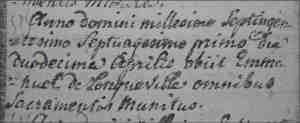 Anno domini millesimo Septingen
tesimo Septuagesimo primo die
duodecima Aprilis obiit Emma
nuel de Longueville omnibus
Sacramentis munitus.